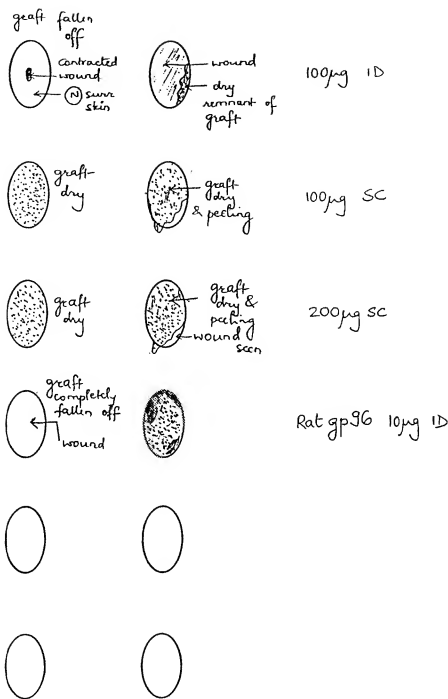 graft fallen
off
contracted
wound
N surr
skin
wound
dry
remnant of
graft
100µg ID
graft
dry
graft
dry
& peeling
100µg SC
graft
dry
graft
dry &
peeling
wound
seen
200µg SC
graft
completely
fallen off
wound
Rat gp96 10µg ID